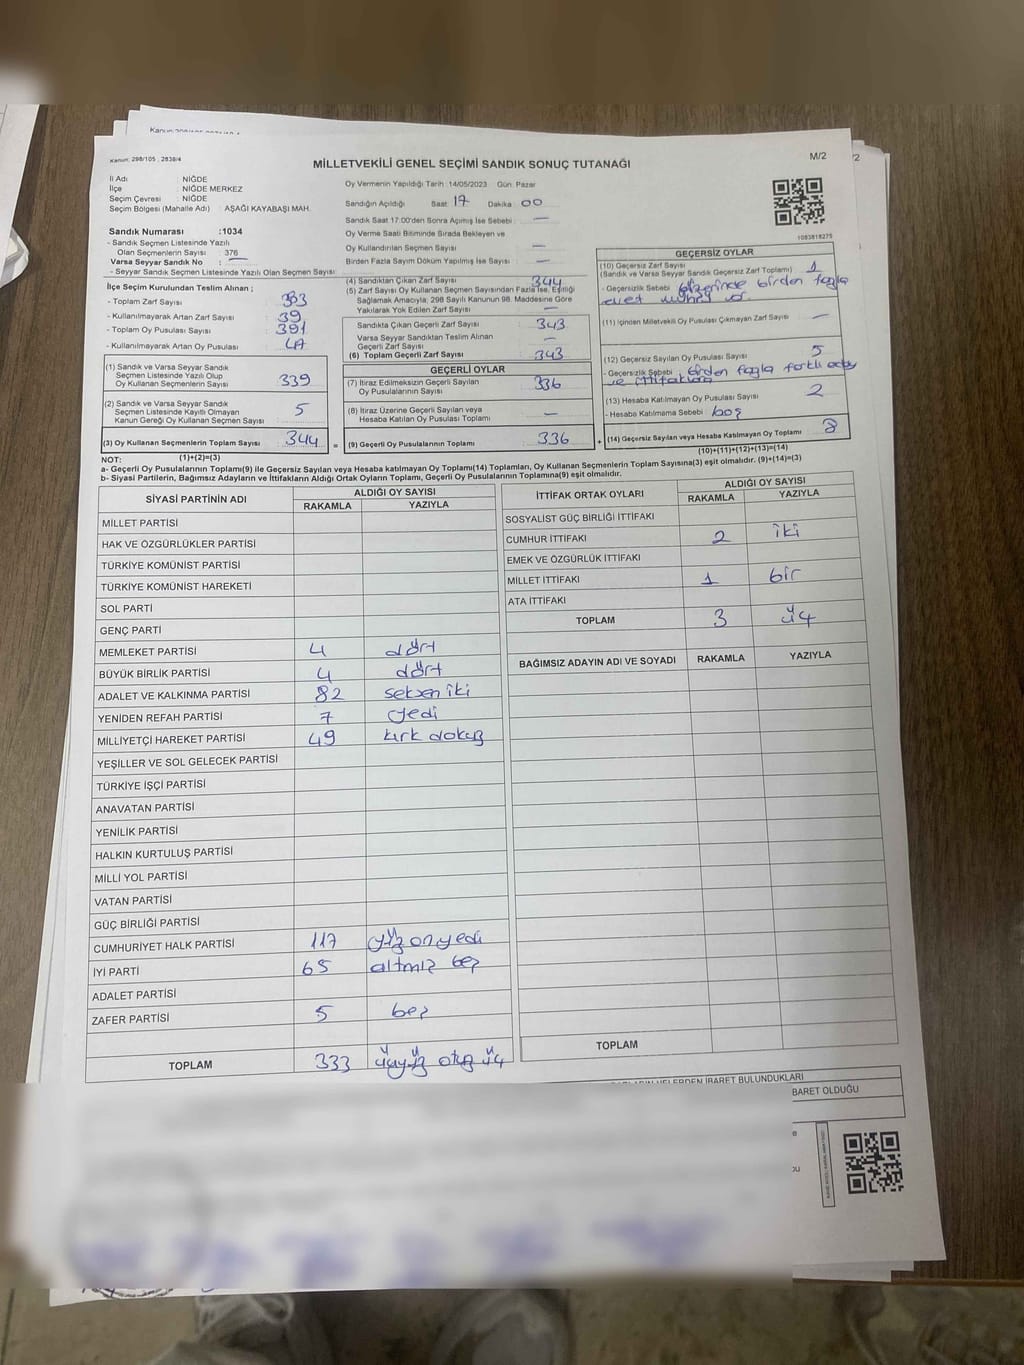 Kanun: 298/105 , 2839/4
MİLLETVEKİLİ GENEL SEÇİMİ SANDIK SONUÇ TUTANAĞI
M/2
/2
İl Adı : NİĞDE
İlçe : NİĞDE MERKEZ
Seçim Çevresi : NİĞDE
Seçim Bölgesi (Mahalle Adı) : AŞAĞI KAYABAŞI MAH.
Sandık Numarası :1034
- Sandık Seçmen Listesinde Yazılı
Olan Seçmenlerin Sayısı 376
Varsa Seyyar Sandık No : —
- Seyyar Sandık Seçmen Listesinde Yazılı Olan Seçmen Sayısı
İlçe Seçim Kurulundan Teslim Alınan ;
- Toplam Zarf Sayısı : 383
- Kullanılmayarak Artan Zarf Sayısı : 39
- Toplam Oy Pusulası Sayısı : 391
- Kullanılmayarak Artan Oy Pusulası
(1) Sandık ve Varsa Seyyar Sandık
Seçmen Listesinde Yazılı Olup
Oy Kullanan Seçmenlerin Sayısı 339
(2) Sandık ve Varsa Seyyar Sandık
Seçmen Listesinde Kayıtlı Olmayan
Kanun Gereği Oy Kullanan Seçmen Sayısı 5
(3) Oy Kullanan Seçmenlerin Toplam Sayısı 344 =
Oy Vermenin Yapıldığı Tarih : 14/05/2023 Gün: Pazar
Sandığın Açıldığı Saat 17 Dakika 00
Sandık Saat 17:00'den Sonra Açımış İse Sebebi : —
Oy Verme Saati Bitiminde Sırada Bekleyen ve
Oy Kullandırılan Seçmen Sayısı —
Birden Fazla Sayım Döküm Yapılmış İse Sayısı —
(4) Sandıktan Çıkan Zarf Sayısı 344
(5) Zarf Sayısı Oy Kullanan Seçmen Sayısından Fazla İse, Eşitliği
Sağlamak Amacıyla; 298 Sayılı Kanunun 98. Maddesine Göre
Yakılarak Yok Edilen Zarf Sayısı —
Sandıkta Çıkan Geçerli Zarf Sayısı 343
Varsa Seyyar Sandıktan Teslim Alınan
Geçerli Zarf Sayısı —
(6) Toplam Geçerli Zarf Sayısı 343
GEÇERLİ OYLAR
(7) İtiraz Edilmeksizin Geçerli Sayılan
Oy Pusulalarının Sayısı 336
(8) İtiraz Üzerine Geçerli Sayılan veya
Hesaba Katılan Oy Pusulası Toplamı —
(9) Geçerli Oy Pusulalarının Toplamı 336 +
1083818275
GEÇERSİZ OYLAR
(10) Geçersiz Zarf Sayısı
(Sandık ve Varsa Seyyar Sandık Geçersiz Zarf Toplamı) 1
- Geçersizlik Sebebi : üzerinde birden fazla
evet mührü var
(11) İçinden Milletvekili Oy Pusulası Çıkmayan Zarf Sayısı —
(12) Geçersiz Sayılan Oy Pusulası Sayısı 5
- Geçersizlik Sebebi : birden fazla farklı aday
ve ittifaklara
(13) Hesaba Katılmayan Oy Pusulası Sayısı 2
- Hesaba Katılmama Sebebi : boş
(14) Geçersiz Sayılan veya Hesaba Katılmayan Oy Toplamı 8
NOT: (1)+(2)=(3)
(10)+(11)+(12)+(13)=(14)
a- Geçerli Oy Pusulalarının Toplamı(9) ile Geçersiz Sayılan veya Hesaba katılmayan Oy Toplamı(14) Toplamları, Oy Kullanan Seçmenlerin Toplam Sayısına(3) eşit olmalıdır. (9)+(14)=(3)
b- Siyasi Partilerin, Bağımsız Adayların ve İttifakların Aldığı Ortak Oyların Toplamı, Geçerli Oy Pusulalarının Toplamına(9) eşit olmalıdır.
SİYASİ PARTİNİN ADI
ALDIĞI OY SAYISI
RAKAMLA YAZIYLA
MİLLET PARTİSİ
HAK VE ÖZGÜRLÜKLER PARTİSİ
TÜRKİYE KOMÜNİST PARTİSİ
TÜRKİYE KOMÜNİST HAREKETİ
SOL PARTİ
GENÇ PARTİ
MEMLEKET PARTİSİ 4 dört
BÜYÜK BİRLİK PARTİSİ 4 dört
ADALET VE KALKINMA PARTİSİ 82 seksen iki
YENİDEN REFAH PARTİSİ 7 yedi
MİLLİYETÇİ HAREKET PARTİSİ 49 kırk dokuz
YEŞİLLER VE SOL GELECEK PARTİSİ
TÜRKİYE İŞÇİ PARTİSİ
ANAVATAN PARTİSİ
YENİLİK PARTİSİ
HALKIN KURTULUŞ PARTİSİ
MİLLİ YOL PARTİSİ
VATAN PARTİSİ
GÜÇ BİRLİĞİ PARTİSİ
CUMHURİYET HALK PARTİSİ 117 yüz onyedi
İYİ PARTİ 65 altmış beş
ADALET PARTİSİ
ZAFER PARTİSİ 5 beş
TOPLAM 333 üçyüz otuz üç
İTTİFAK ORTAK OYLARI
ALDIĞI OY SAYISI
RAKAMLA YAZIYLA
SOSYALİST GÜÇ BİRLİĞİ İTTİFAKI
CUMHUR İTTİFAKI 2 iki
EMEK VE ÖZGÜRLÜK İTTİFAKI
MİLLET İTTİFAKI 1 bir
ATA İTTİFAKI
TOPLAM 3 üç
BAĞIMSIZ ADAYIN ADI VE SOYADI RAKAMLA YAZIYLA
TOPLAM
İBARET BULUNDUKLARI
BARET OLDUĞU